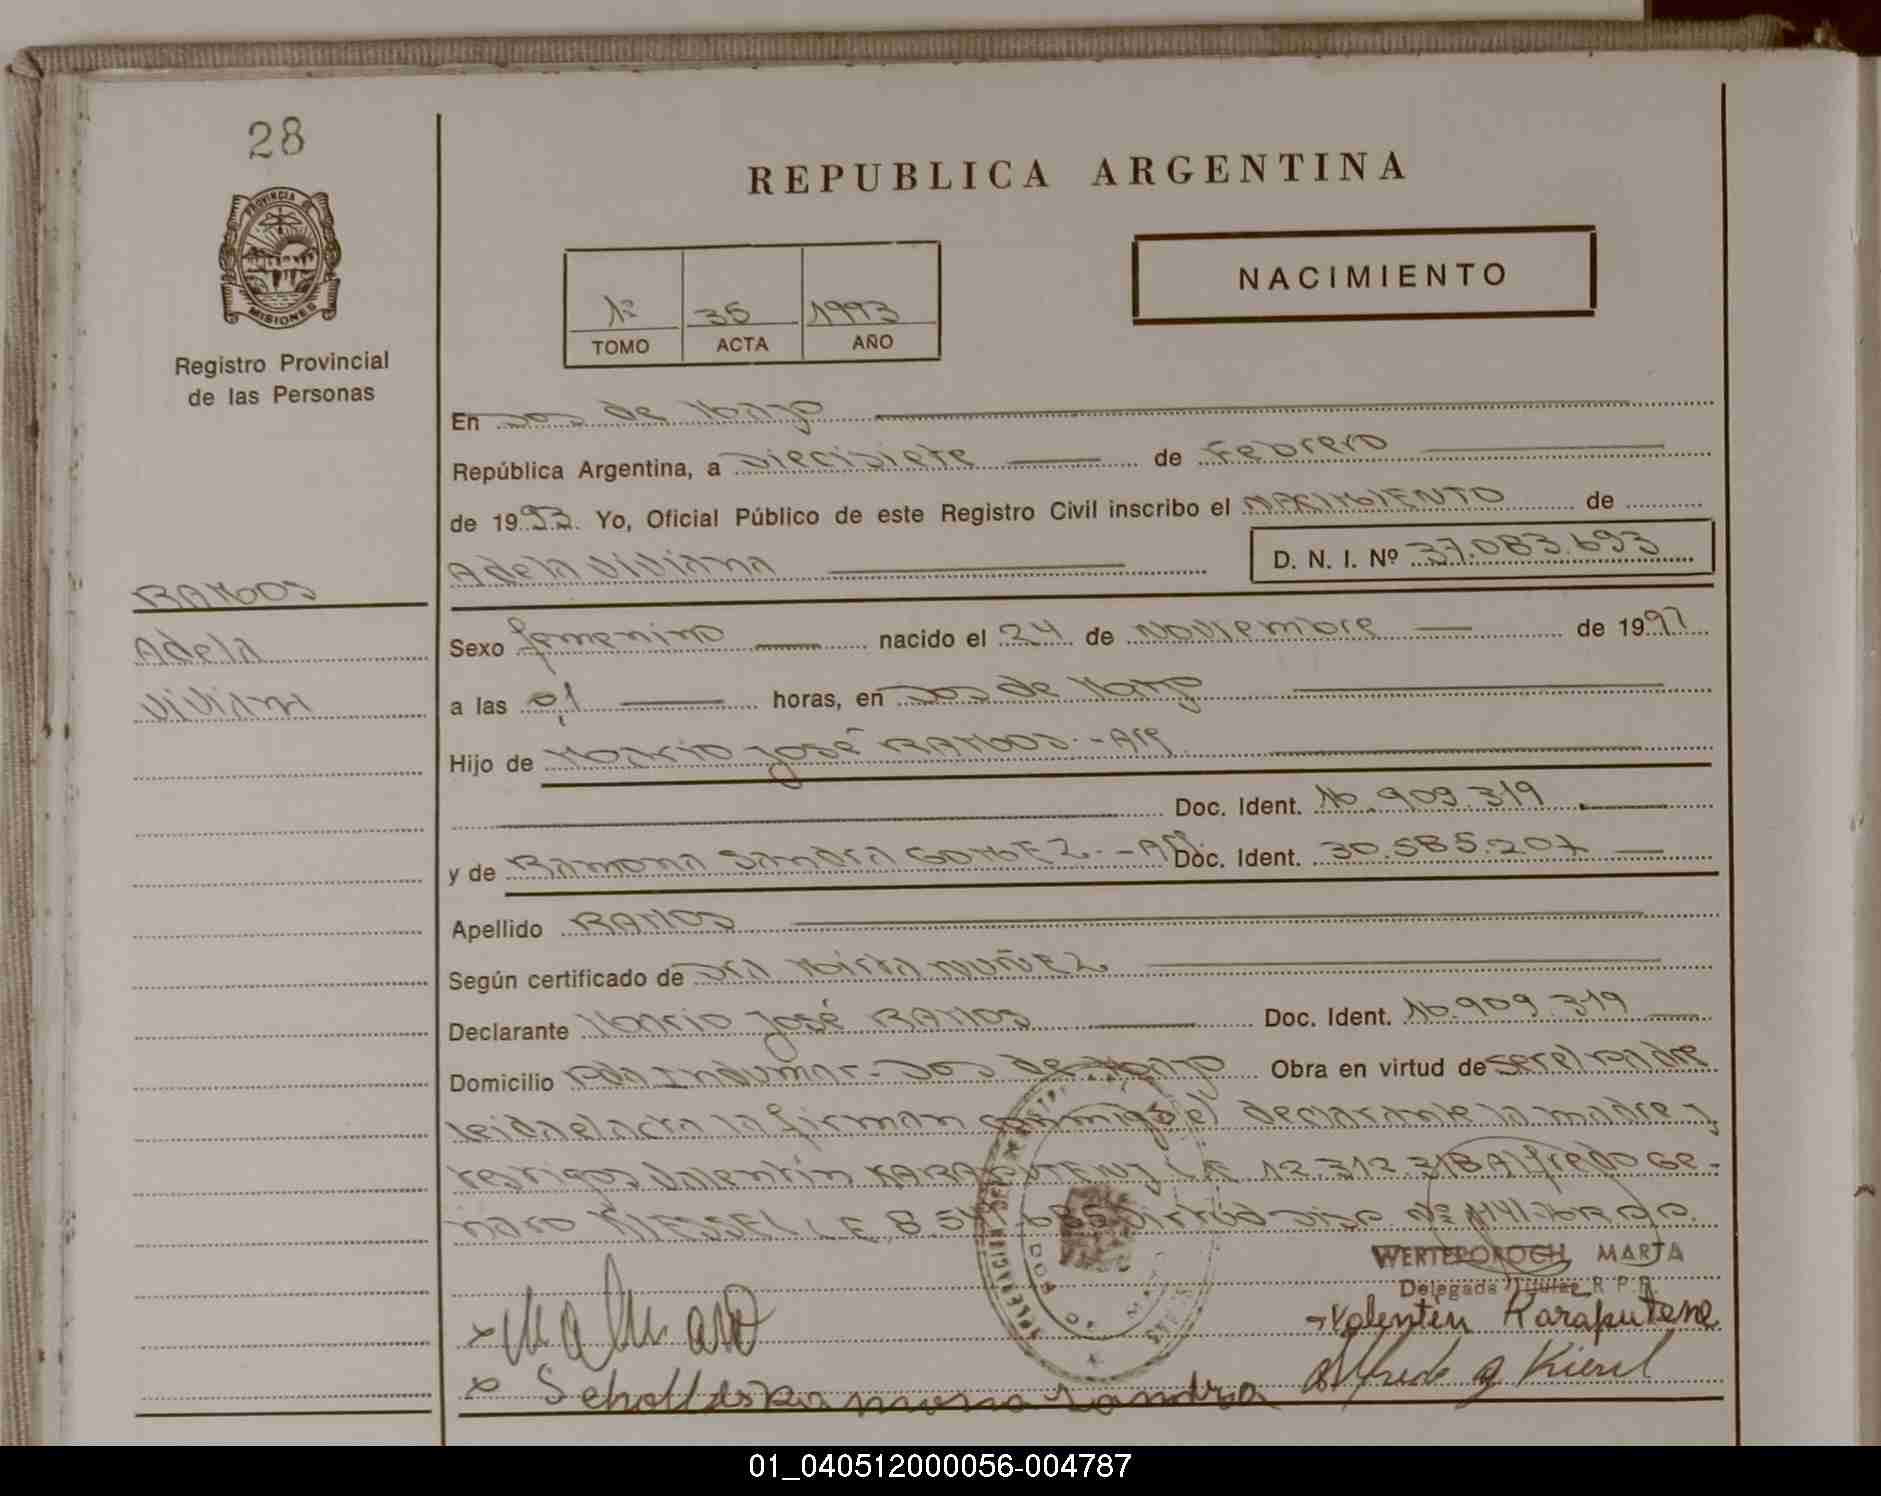 28
PROVINCIA DE
MISIONES
Registro Provincial
de las Personas
REPUBLICA ARGENTINA
NACIMIENTO
1º 35 1993
TOMO ACTA AÑO
En Dos de Mayo
República Argentina, a Diecisiete de Febrero
de 1993. Yo, Oficial Público de este Registro Civil inscribo el NACIMIENTO de
Adela Viviana D. N. I. Nº 37.083.693
RAMOS
Adela
Viviana
Sexo femenino nacido el 24 de Noviembre de 1992
a las 01 horas, en Dos de Mayo
Hijo de Mario José RAMOS.-Arg.
Doc. Ident. 16.909.319
y de Ramona Sandra GOMEZ.-Arg. Doc. Ident. 30.585.207
Apellido RAMOS
Según certificado de Dra Mirta NUÑEZ
Declarante Mario José RAMOS Doc. Ident. 16.909.319
Domicilio Dos de Mayo Obra en virtud de ser el padre
leida el acta la firman conmigo el declarante la madre y
testigos Valentín KARAPUTENY L.E. 12.312.318 Alfredo Ge-
naro KIESSEL L.E. 8.541.685
WERTEPOROGH, MARTA
Delegada Titular R.P.P.
Valentin Karaputene
Ramona Sandra
Alfredo g Kiesel
01_040512000056-004787